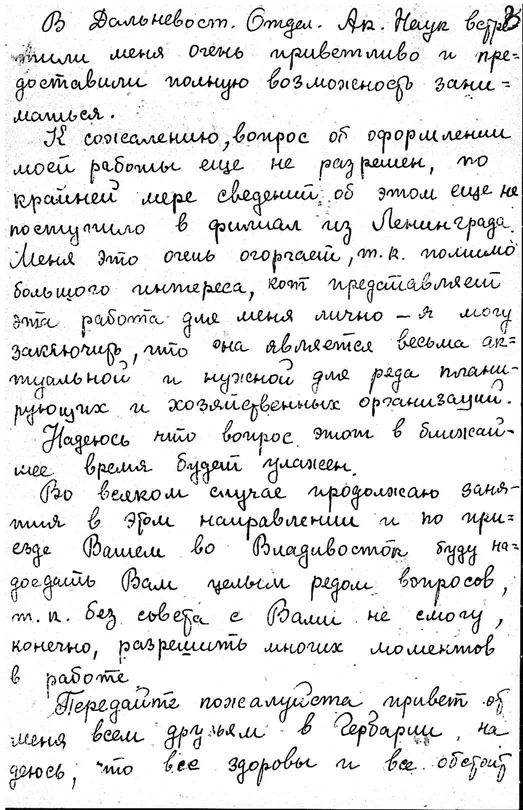 В Дальневост. Отдел. Ак. Наук встре-
тили меня очень приветливо и пре=
доставили полную возможность зани=
маться.
К сожалению, вопрос об оформлении
моей работы еще не разрешен, по
крайней мере сведений об этом еще не
поступило в филиал из Ленинграда.
Меня это очень огорчает, т.к. помимо
большого интереса, кот представляет
эта работа для меня лично – я могу
заключить, что она является весьма ак=
туальной и нужной для ряда плани-
рующих и хозяйственных организаций.
Надеюсь что вопрос этот в ближай-
шее время будет улажен.
Во всяком случае продолжаю заня-
тия в этом направлении и по при=
езде Вашем во Владивосток буду на=
доедать Вам целым рядом вопросов,
т.к. без совета с Вами не смогу,
конечно, разрешить многих моментов
в работе
Передайте пожалуйста привет от
меня всем друзьям в Гербарии, на
деюсь, что все здоровы и все обстоит